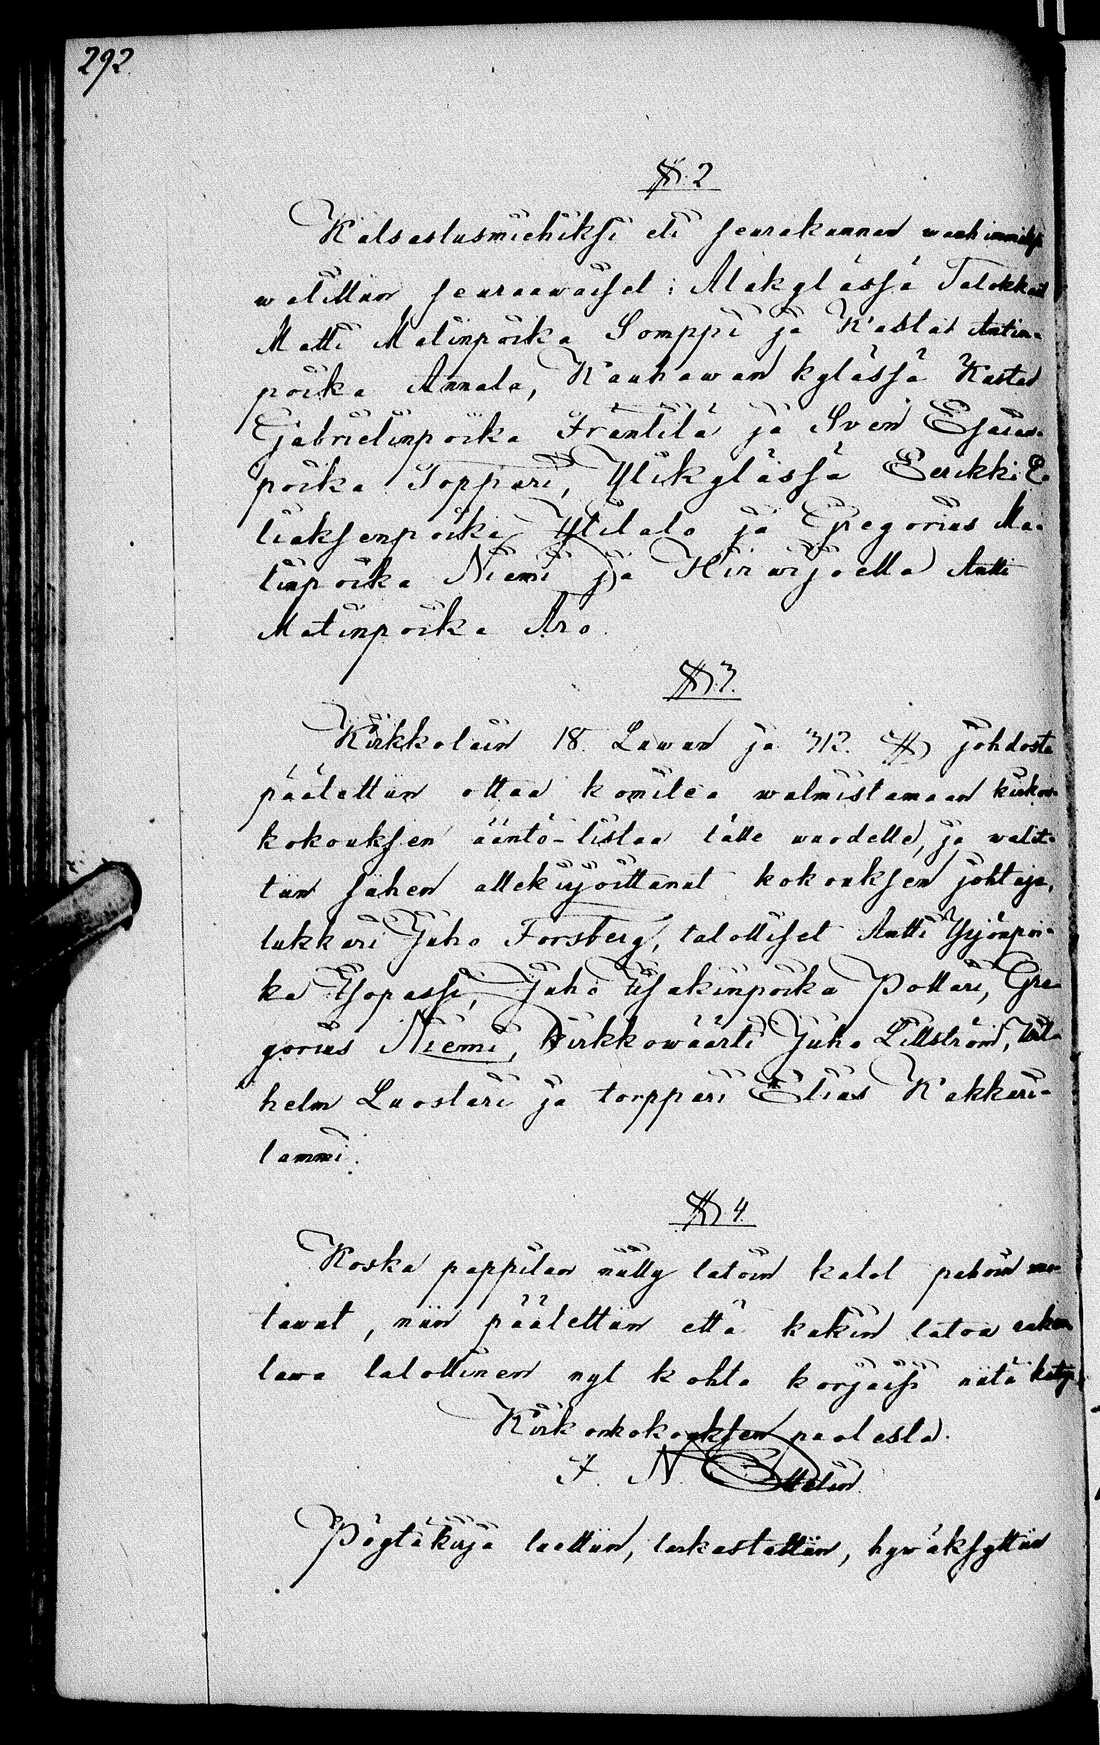 292.
§ 2
Katsastusmiehiksi eli seurakunnan wanhimmiksi
walittiin seuraawaiset: Alakylässä Talokkaat
Matti Matinpoika Somppi ja Kustaa Antin-
poika Annala, Kauhawan kylässä Kustaa
Gabrielinpoika Franttila ja Sven Esaian-
poika Toppari, Ylikylässä Eerikki E-
liaksenpoika Ylitalo ja Gregorius Ma-
tinpoika Niemi ja Hirwijoella Antti
Matinpoika Aro.
§ 3.
Kirkkolain 18. Luwun ja 312. § johdosta
päätettiin ottaa komitea walmistamaan kirkon-
kokouksen ääntö-listaa tälle wuodelle, ja walit-
tiin siihen allekirjoittanut kokouksen johtaja,
lukkari Juho Forsberg, talolliset Antti Yrjönpoi-
ka Passi, Juho Isakinpoika Pottari, Gre-
gorius Niemi, Kirkkowäärti Juho Lillström, Wil-
helm Luostari ja torppari Elias Kakkuri-
lammi.
§ 4.
Koska pappilan niitty latoin katot pahoin
tawat, niin päätettiin että kukin latoa raken-
tawa talollinen nyt kohta korjaisi niitä
Kirkonkokouksen puolesta.
J. N.
Pöytäkirja luettiin, tarkastettiin, hywäksyttiin